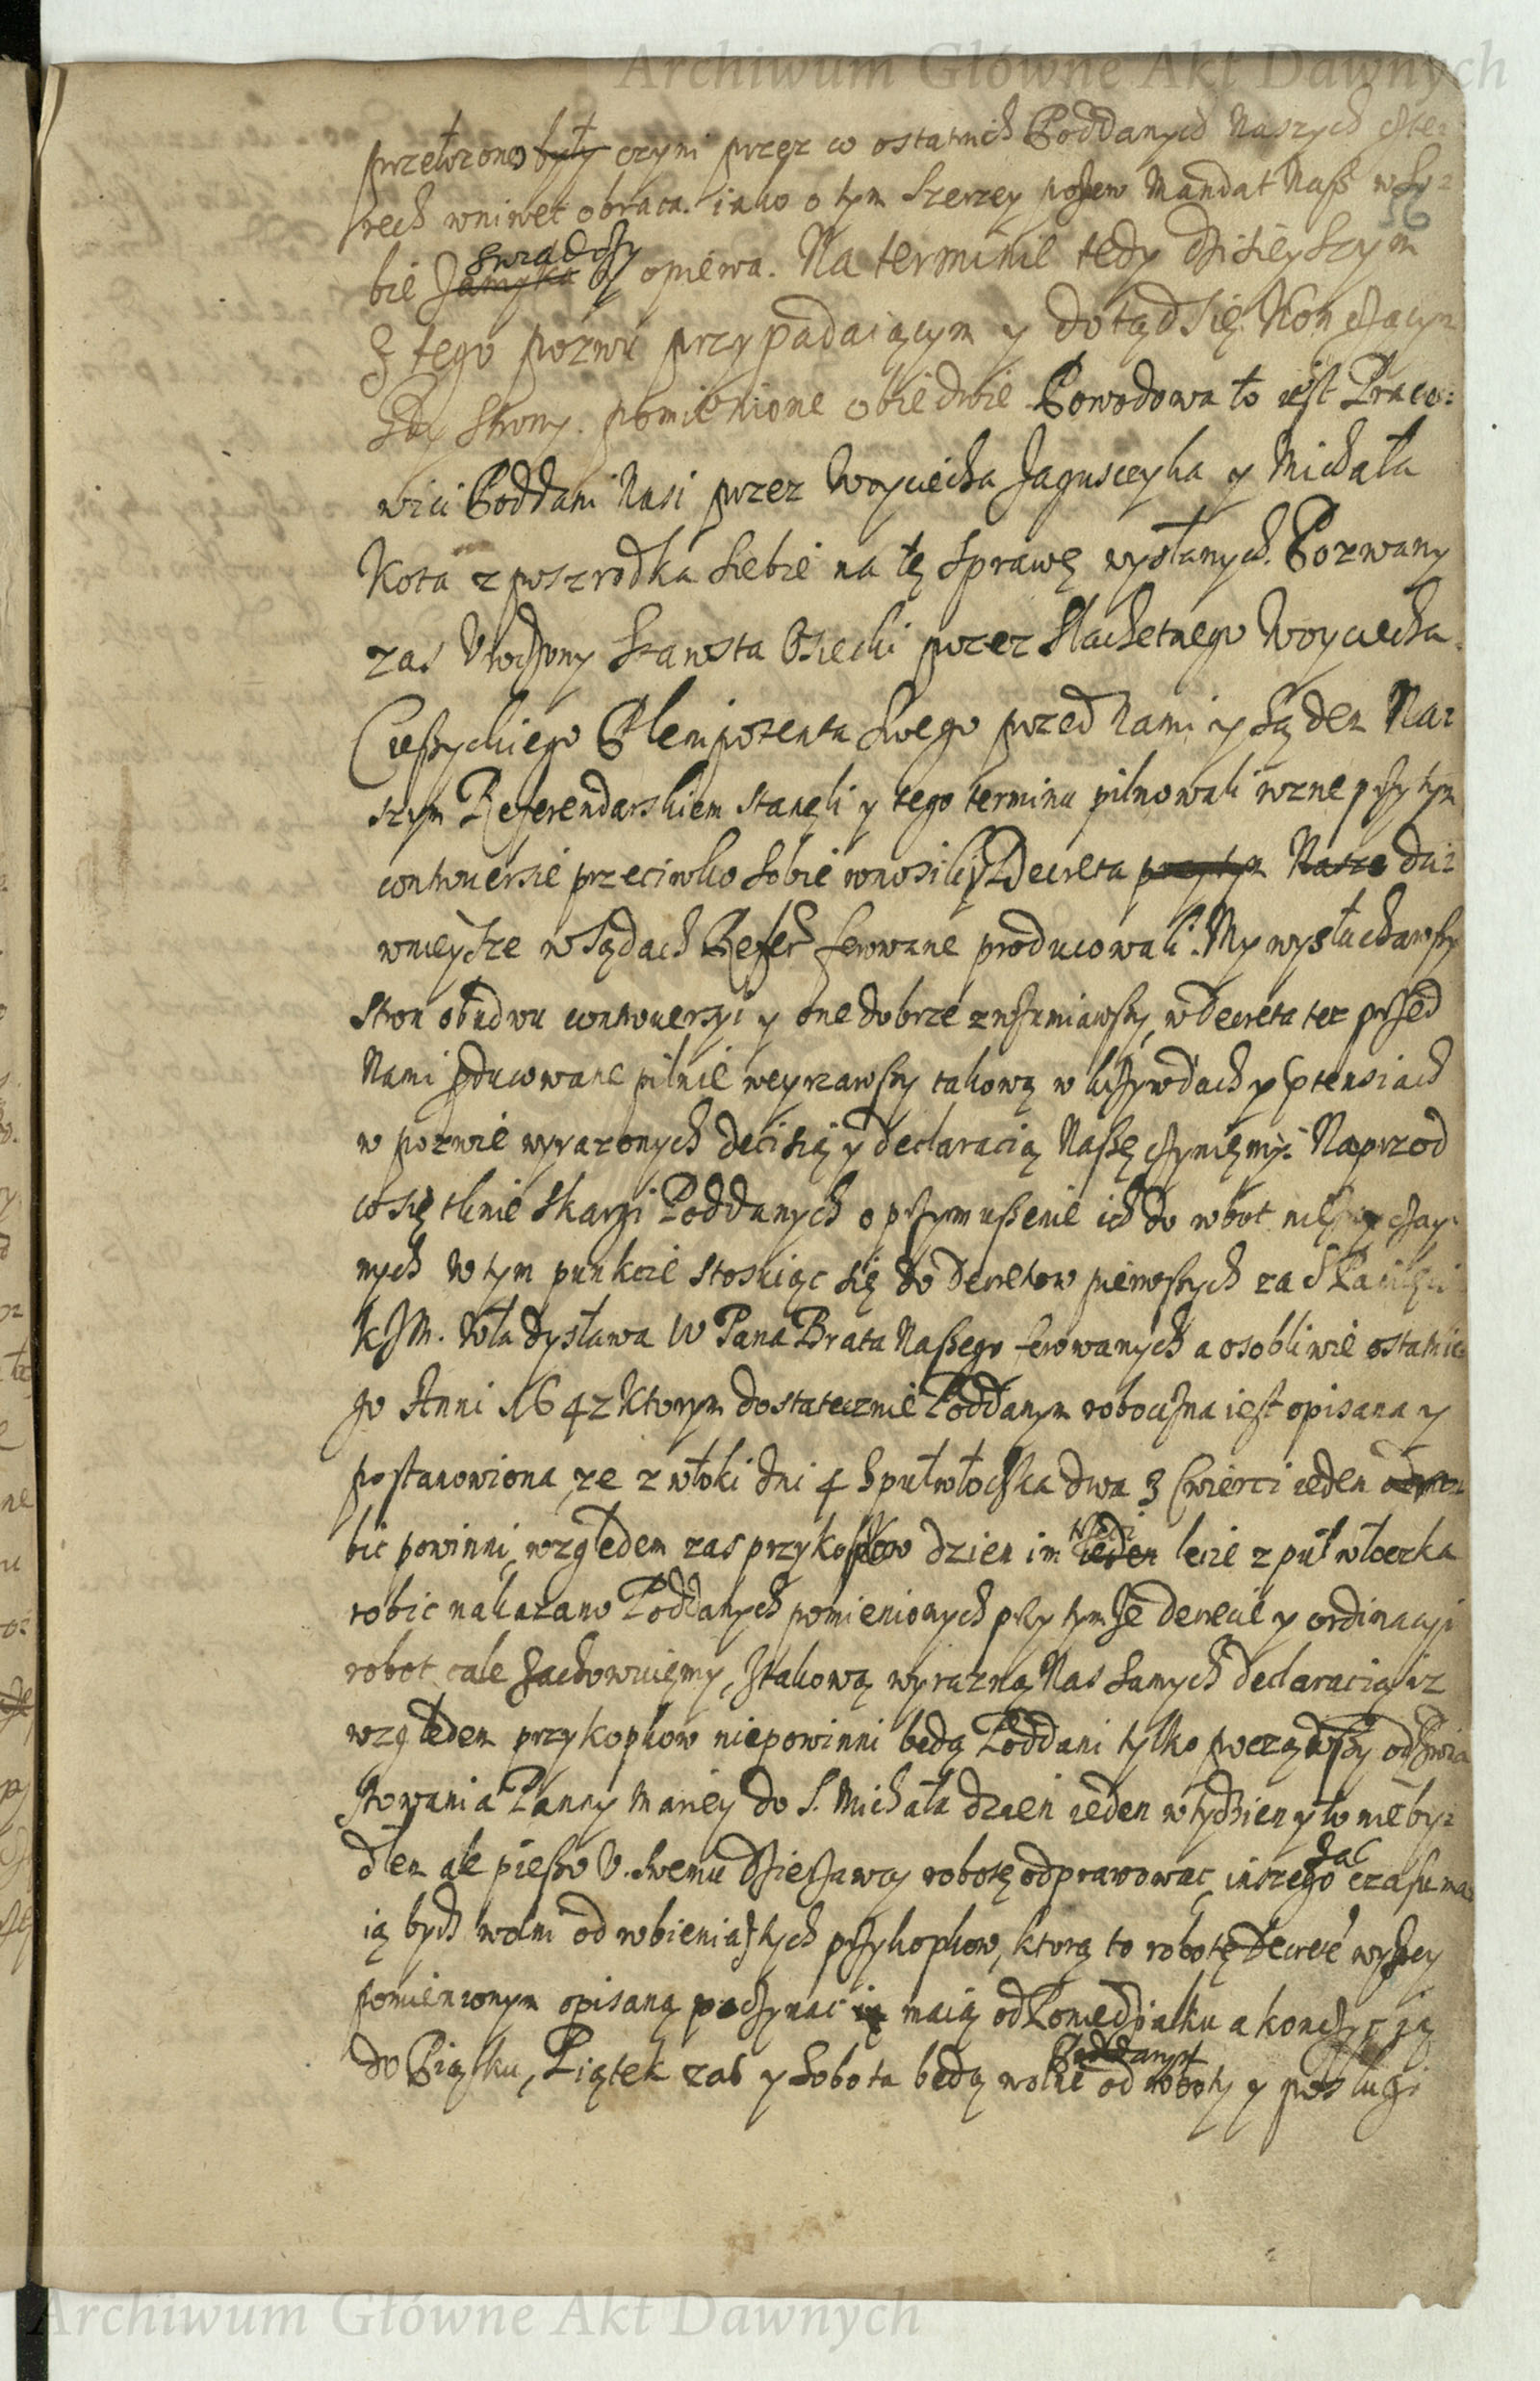 Archiwum Główne Akt Dawnych
przełozono były czyni przez co ostatnich Poddanych Naszych
wniwet obraca. iako o tym szerzey pozew Mandat Nasz w so-
56
bie świadczy y opiewa. Na terminie tedy dzisieyszym
z tego pozwu przypadaiącym y dotąd się kończącym
gdy strony pomienione obiedwie Powodowa to iest Praco-
wici Poddani Nasi przez Woyciecha Jaguscyka y Michała
Kota z poszrodka siebie na tę sprawę wysłanych. Pozwany
zas Urodzony Starosta Osiecki przez Slachetnego Woyciecha
Plenipotenta swego przed Nami y Sądem Na-
szym Referendarskiem stanęli y tego terminu pilnowali rozne przy tym
controuersie przeciwko sobie wnosili y Decreta Nasze da-
wnieysze w Sądach Refer ferowane producowali. My wysłuchawszy
stron obudwu controuersyi y one dobrze zrozumiawszy, w Decreta tez przed
Nami producowane pilnie weyrzawszy takową w krzywdach y ptensiach
w pozwie wyrazonych decisią y declaracią Naszę czyniemy. Naprzod
co się tknie skargi Poddanych o przymuszenie ich do robot niezwyczay-
nych w tym punkcie stosuiąc się do Decretow pierwszych za S Pamięci
K J M. Władysława IV Pana Brata Naszego ferowanych a osobliwie ostatnie-
go Anni 1642 ktorym dostatecznie Poddanym robocizna iest opisana y
postanowiona, ze z włoki dni 4 z pułwłoczka dwa z cwierci ieden
bic powinni, względem zas przykopow dzien im ieden lecie z puł włoczka
robic nakazano Poddanych pomienionych przy tymze decrecie y ordinacyi
robot cale zachowuiemy, z takową wyrazną Nas samych declaracią iz
względem przykopkow niepowinni będą Poddani tylko począwszy od Zwia
stowania Panny Mariey do S. Michała dzien ieden w tydzien y to nie by-
dłem ale pieszo U. swemu Dzierzawcy robotę odprawować, inszego zas czasu ma-
ią bydz wolni od robienia tych przykopkow, ktorą to robotę Decrete wyszey
pomienionym opisaną poczynac maią od Poniedziałku a konczyc ią
do Piątku, Piątek zas y Sobota będą wolne Poddanym od roboty y posługi
Archiwum Główne Akt Dawnych